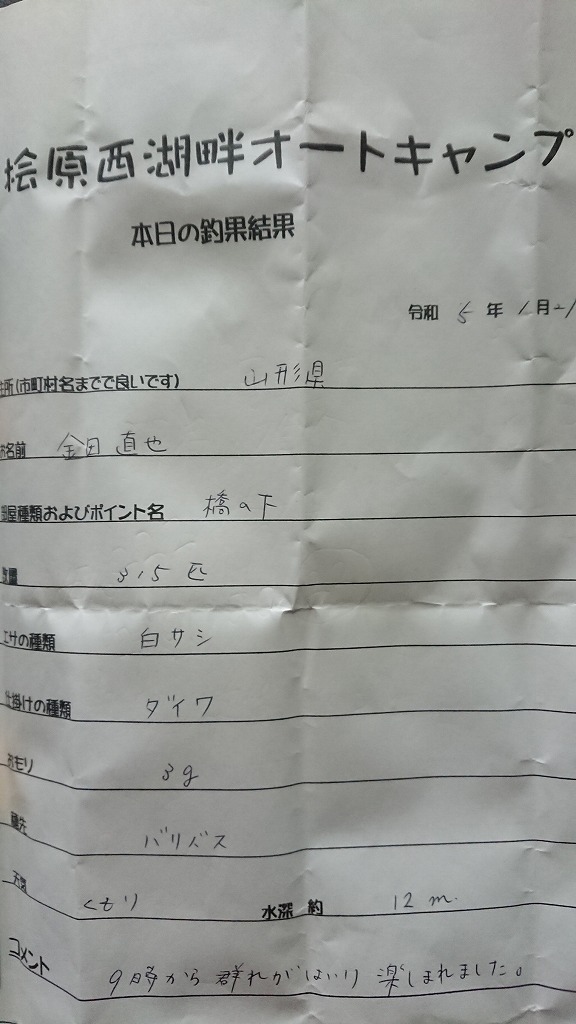 桧原西湖畔オートキャンプ
本日の釣果結果
令和 5 年 1月21
住所(市町村名までで良いです) 山形県
お名前 金田 直也
部屋種類およびポイント名 橋の下
数量 315 匹
エサの種類 白サシ
仕掛けの種類 ダイワ
おもり 3g
穂先 バリバス
天気 くもり 水深 約 12 m.
コメント 9時から群れがはいり 楽しまれました。